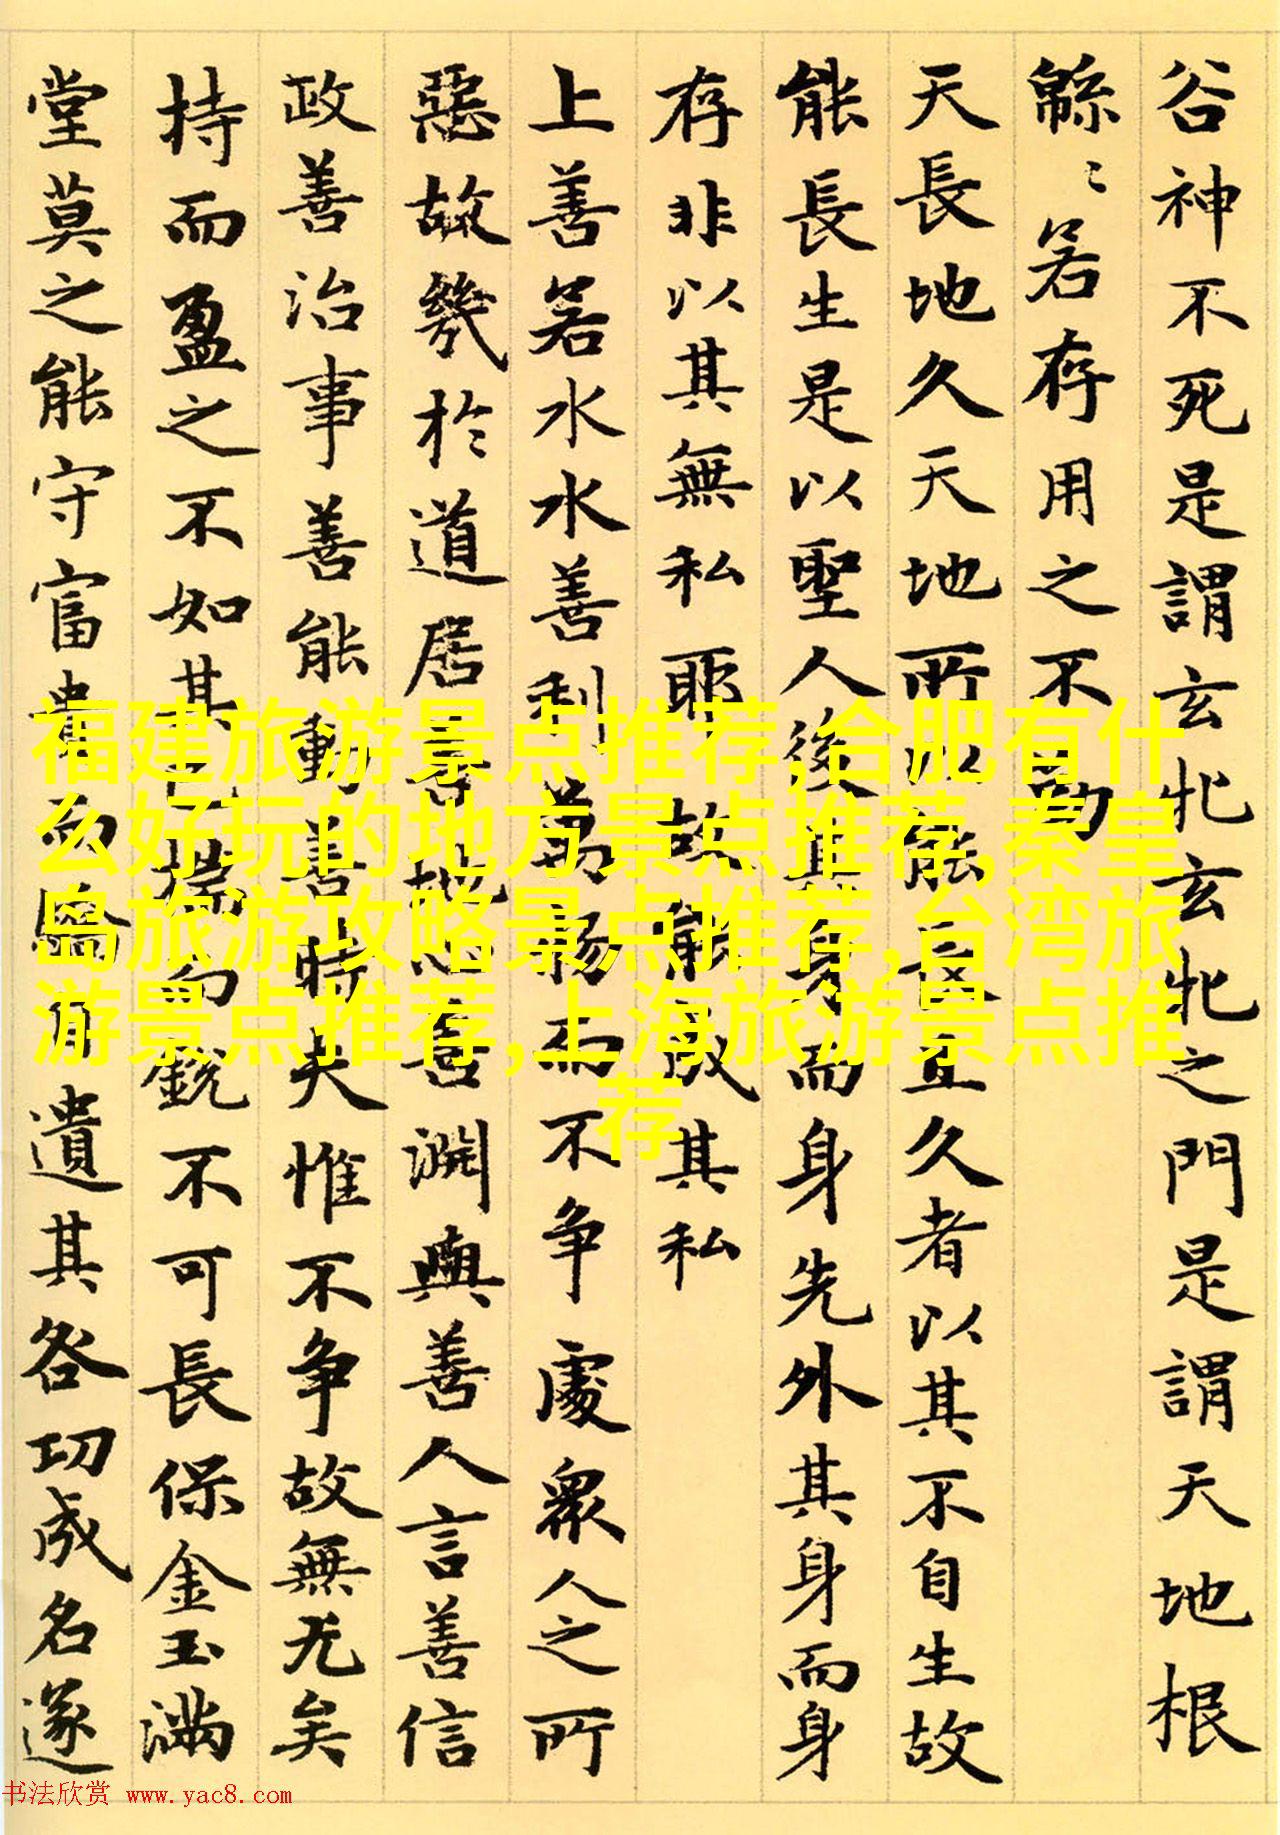 谷神不死是謂玄牝玄牝之門是謂天地根
緜〻若存用之不勤
天長地久天地所以能長且久者以其不自生故
能長生是以聖人後其身而身先外其身而身
存非以其無私耶故能成其私
上善若水水善利萬物而不争處衆人之所
惡故幾於道居善地心善渊與善人言善信
政善治事善能動善時夫惟不争故無尤矣
持而盈之不如其已揣而銳不可長保金玉滿
堂莫之能守富貴而驕自遺其咎功成名遂
福建旅游景点推荐,合肥有什
么好玩的地方景点推荐,秦皇
岛旅游攻略景点推荐,台湾旅
游景点推荐,上海旅游景点推
荐
书法欣赏 www.yac8.com